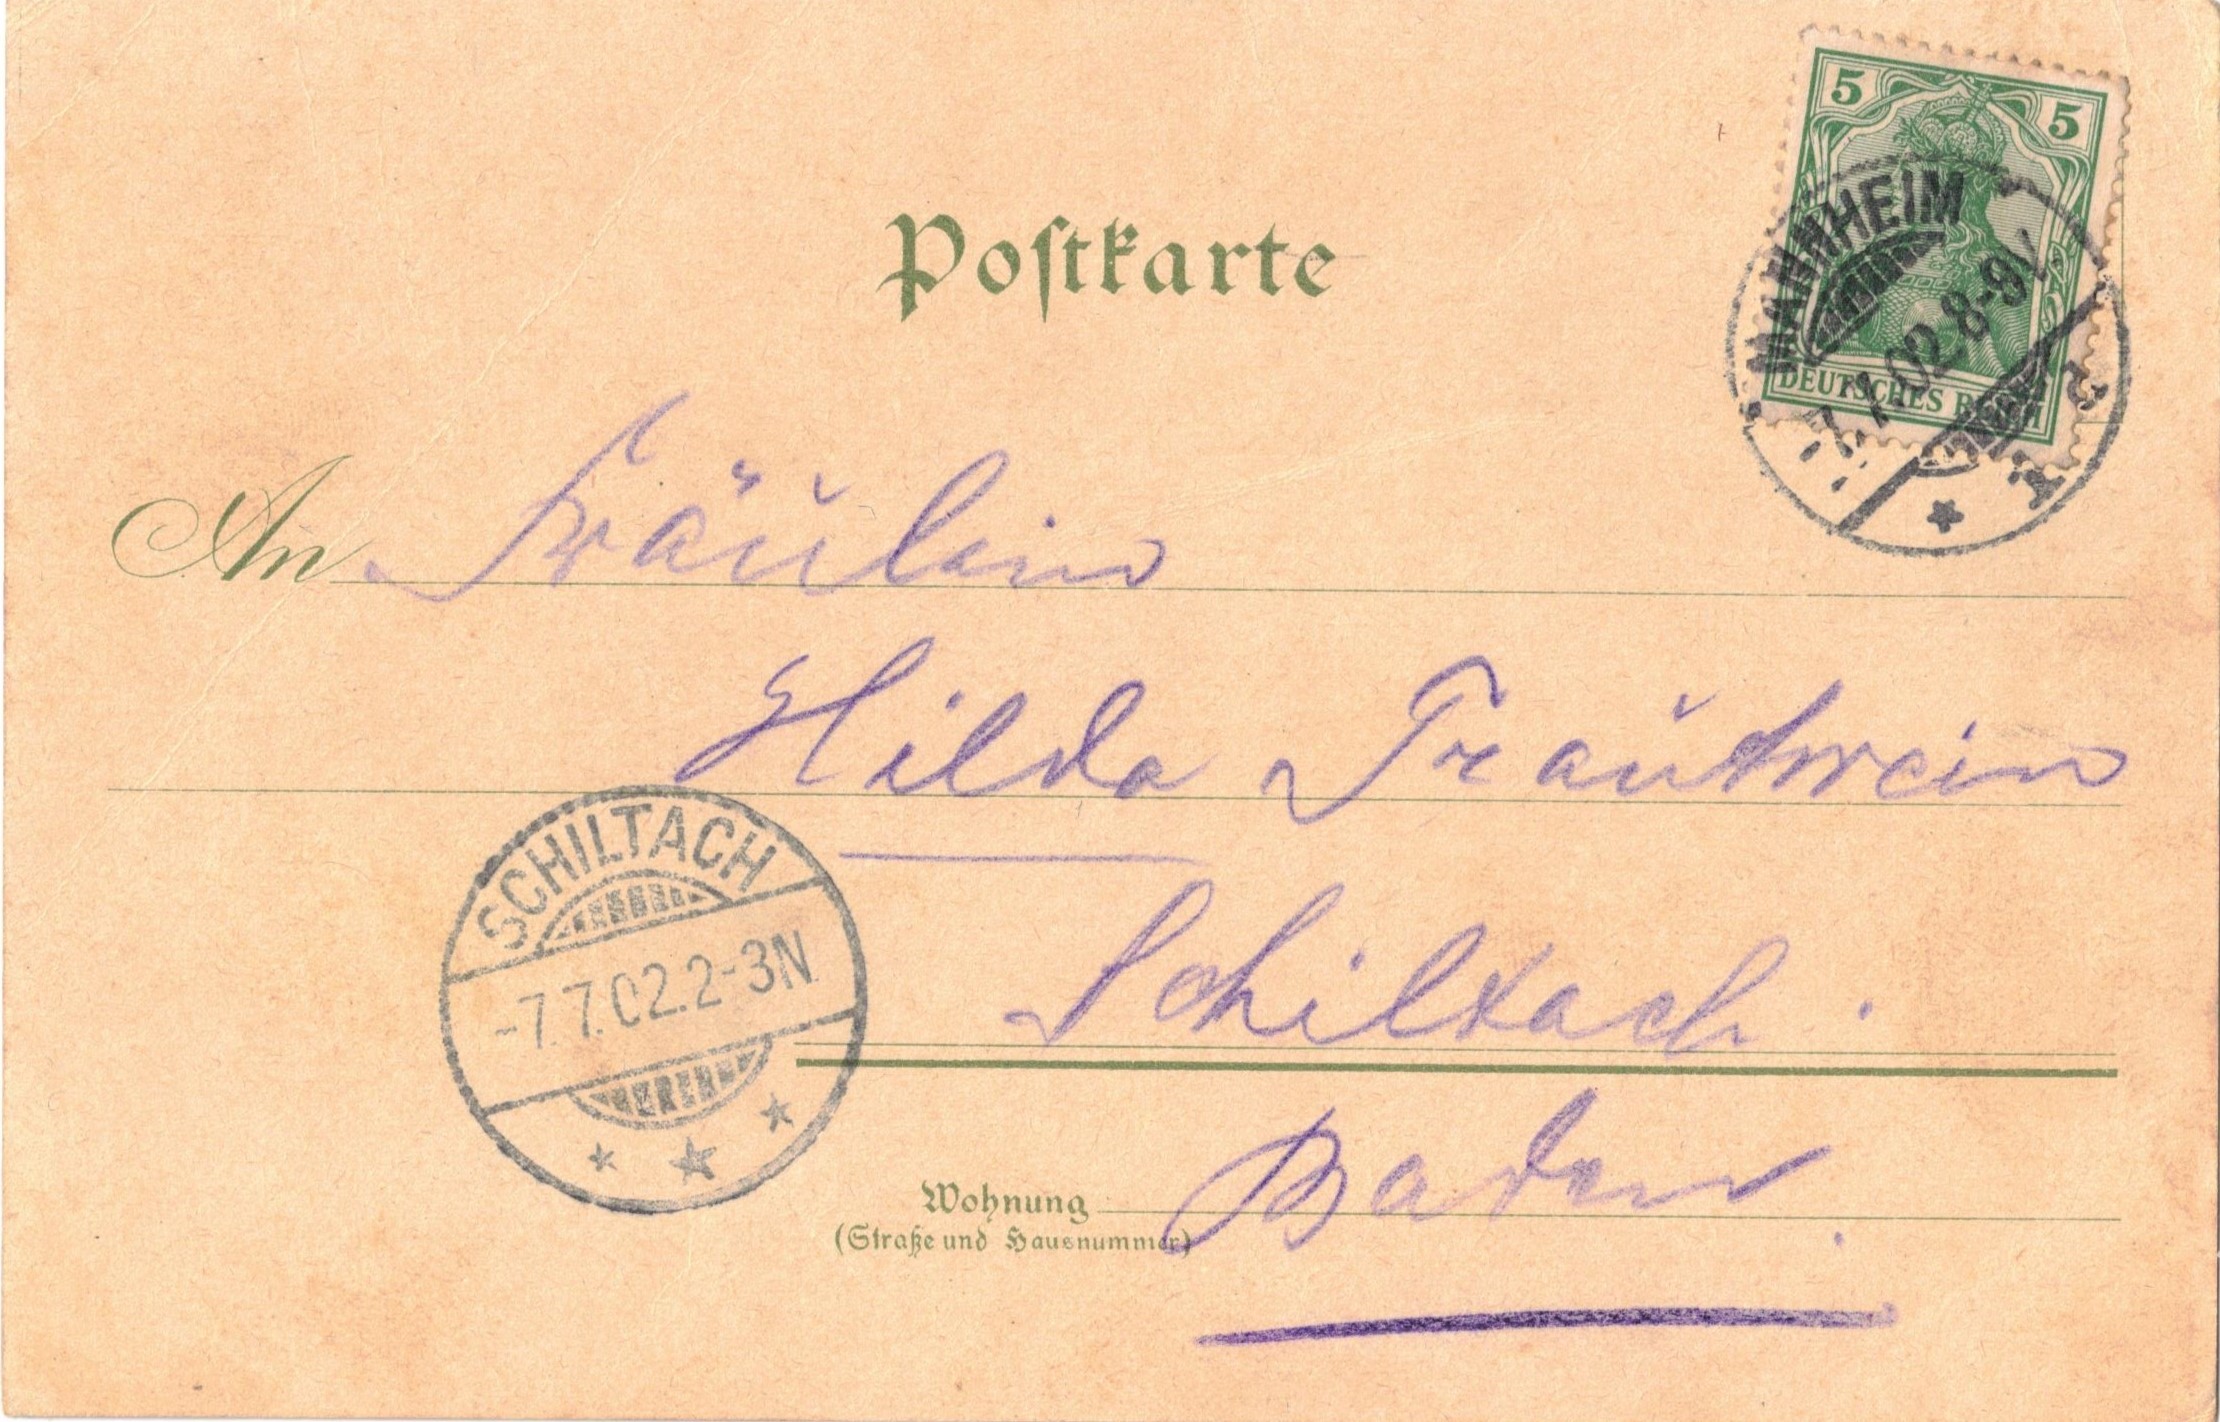 5 5
MANNHEIM
7.7.02.8-9V.
DEUTSCHES REICH
Postkarte
An Fräulein
Hilda Trautwein
SCHILTACH
-7.7.02.2-3N.
Schiltach.
Baden.
Wohnung
(Straße und Hausnummer)